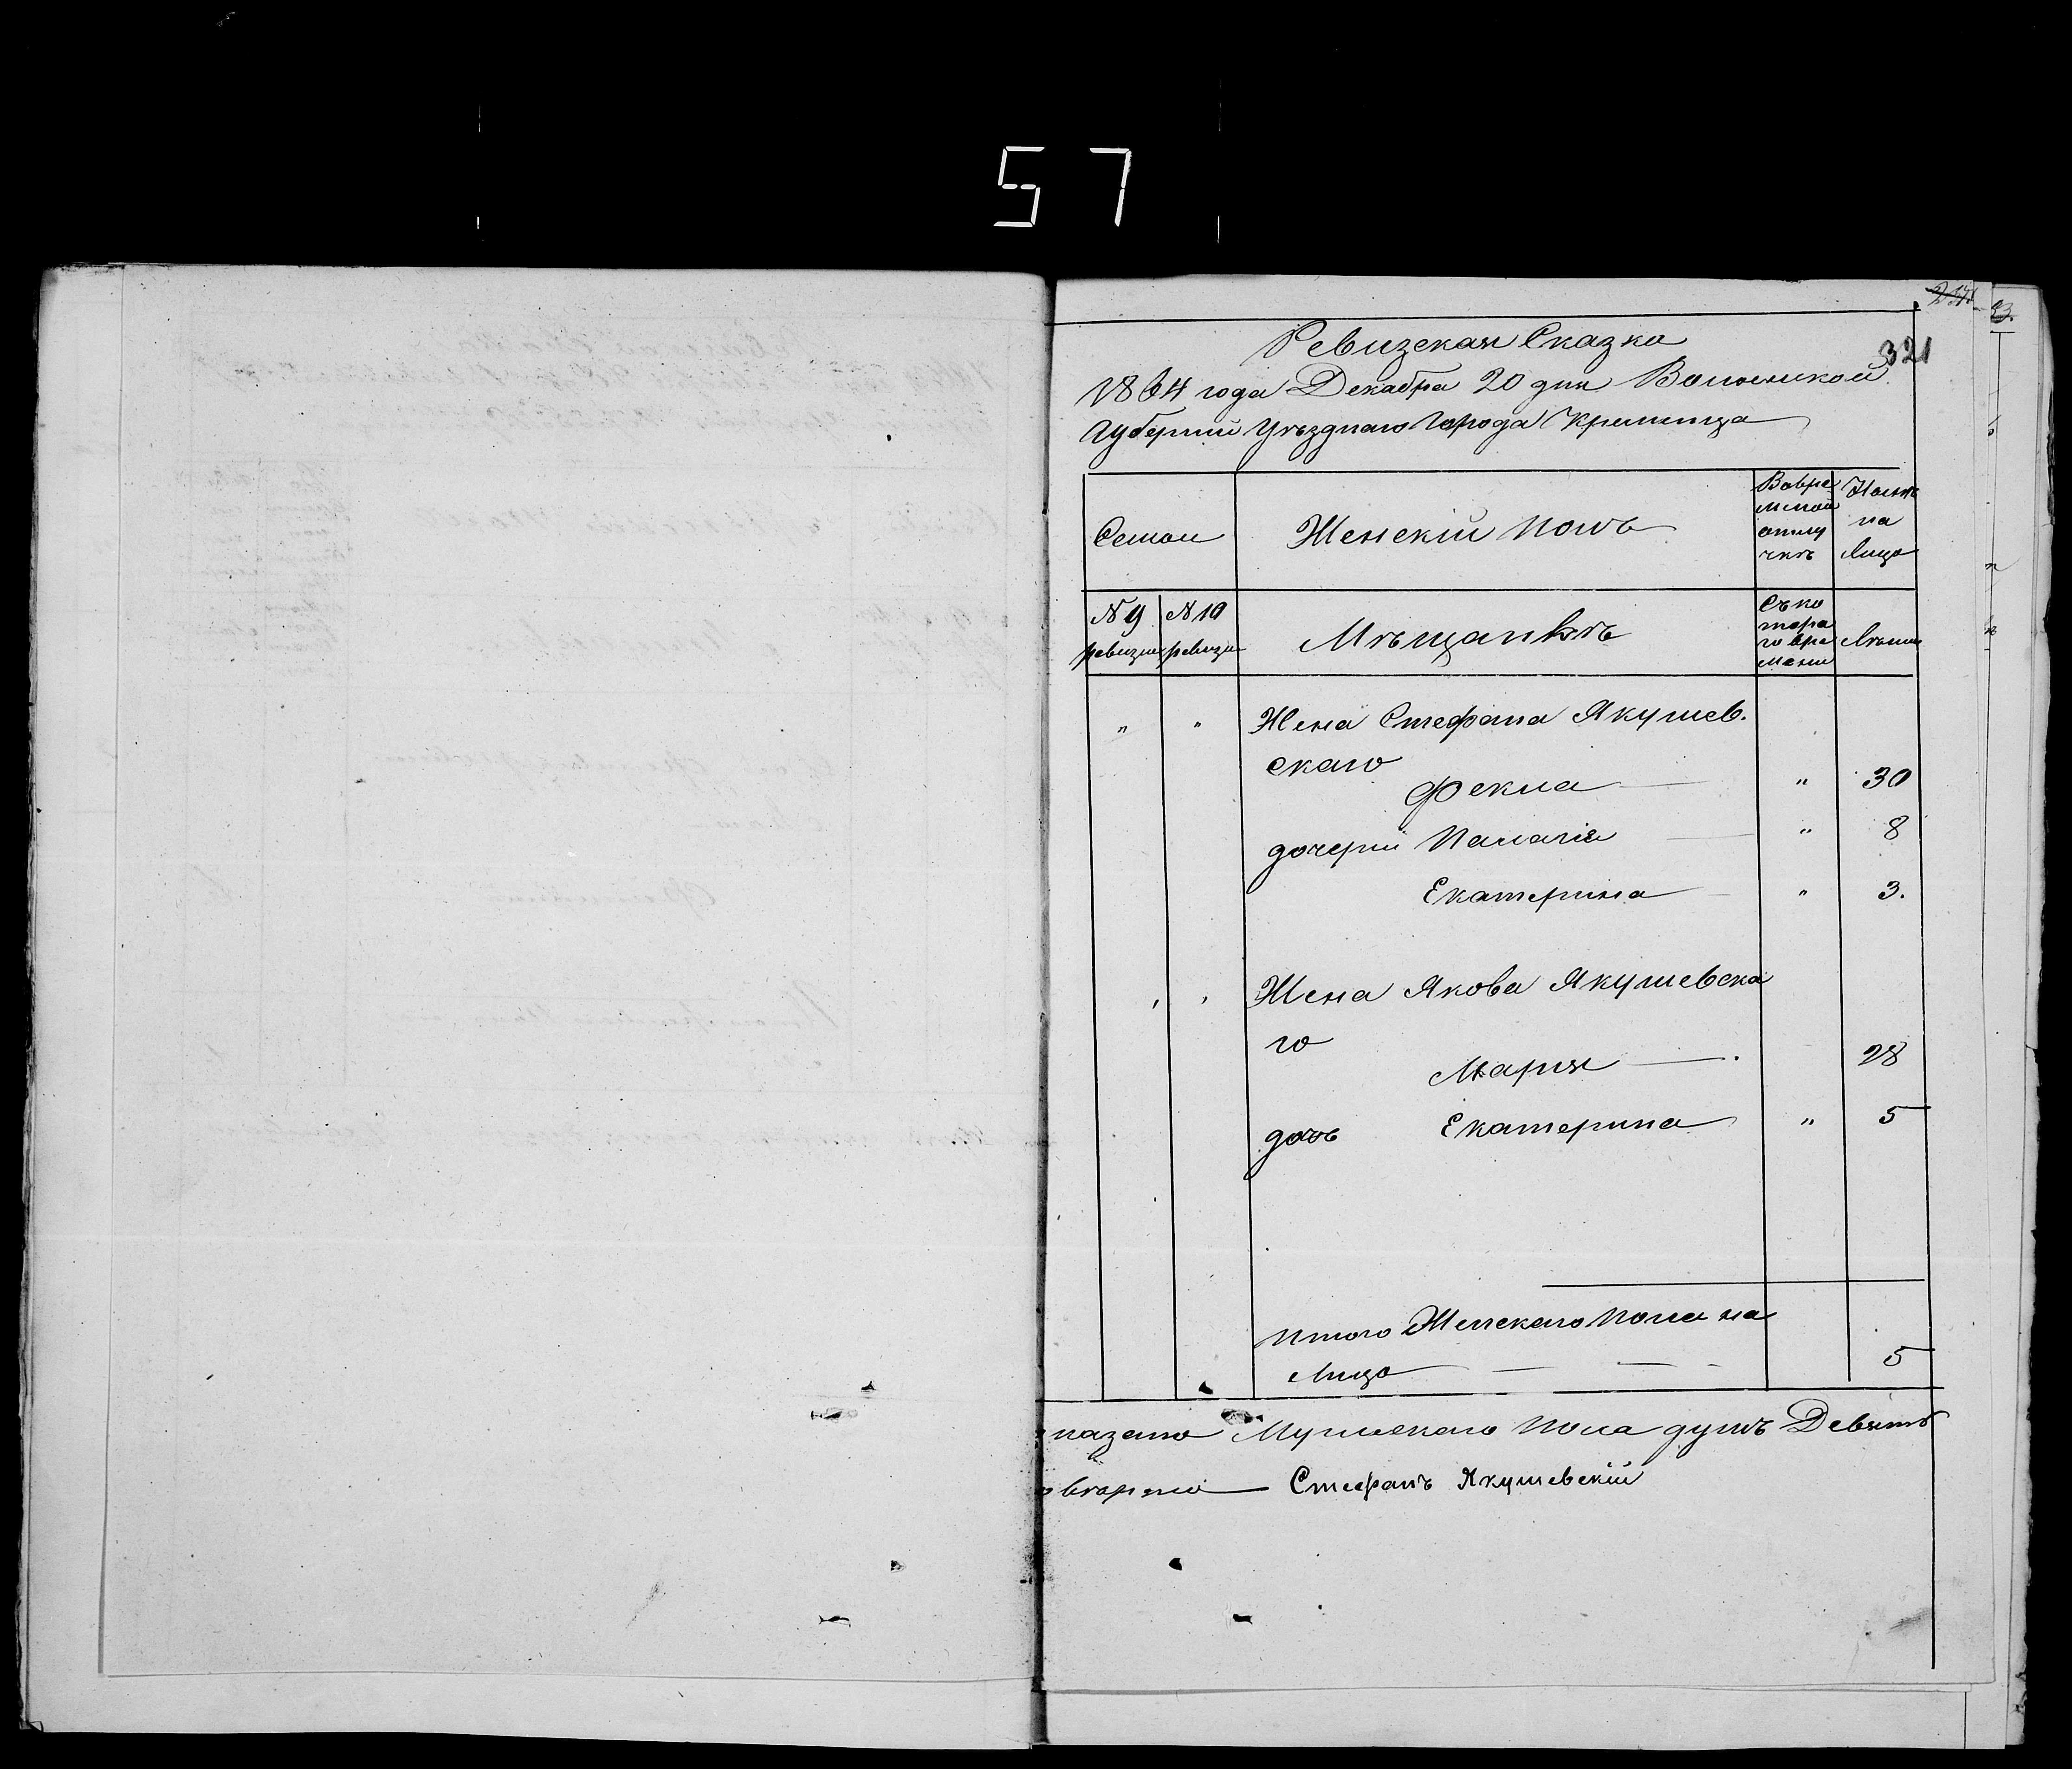 57
23.
321
Ревизская Сказка
1864 года Декабра 20 дня Волынской
Губернии Уѣзднаго Города Кременца
Семьи
Женскій полъ
Вовре
менной
отлу
чкѣ
Налич
на
Лицо
№ 9
ревизии
№ 10
ревизи
Мѣщанкѣ
Съ ко
тора
го вре
мени
Лѣта
" " Жена Стефана Якушев.
скаго
Фекла " 30
дочери Палагія " 8
Екатерина " 3.
Жена Якова Якушевска
го
Марія 28
дочь Екатерина " 5
Итого Женскаго пола на
Лицо 5
Мужескаго пола душъ Девять
Стефанъ Якушевскій